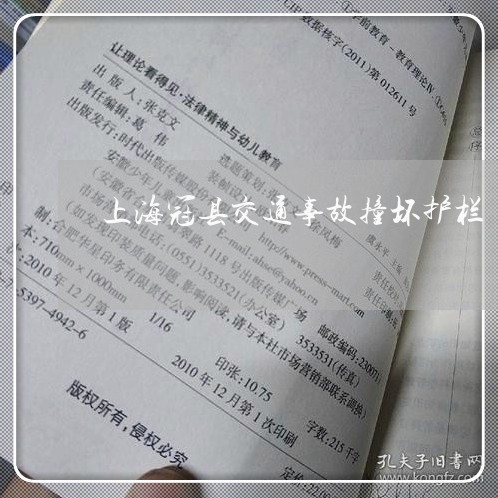 ①学前教育－教育理论Ⅳ．①G610
CIP数据核字(2011)第 012611 号
让理论看得见·法律精神与幼儿教育
出 版 人：张克文
选题策划：张
责任编辑：葛 伟
装帧设
金凤梅
出版发行：时代出版传媒股份
http://www.press-mart.com
安徽少年儿
E-mail:ahse@yahoo.cn
(安徽省
路1118号出版传媒广场
邮政编码：230071)
市场营
电话：(0551)3533521(办公室)
3533531(传真)
(如发现印装质量问题，影响阅读，请与本社市场营销部联系调换)
制：合肥华星印务有限责任公司
本：710mm×1000mm
1/16
印张：10.75
字数：215千字
次：2010年12月第1版
2010年12月第1次印刷
7-5397-4942-6
定价：22.00
版权所有，侵权必究
上海冠县交通事故撞坏护栏
孔夫子旧书网
www.kongfz.com